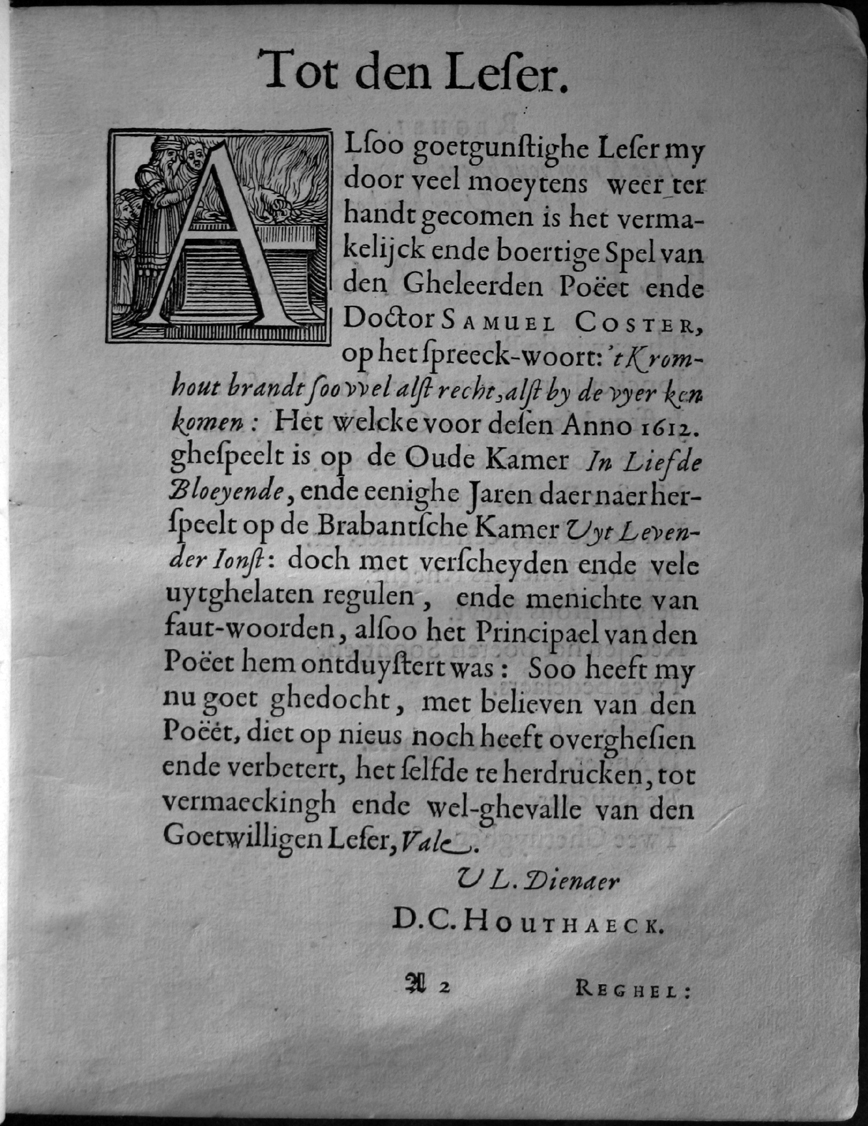 Tot den Leſer.
ALſoo goetgunſtighe Leſer my
door veel moeytens weer ter
handt gecomen is het verma-
kelijck ende boertige Spel van
den Gheleerden Poëet ende
Doctor SAMUEL COSTER,
op het ſpreeck-woort: 't Krom-
hout brandt ſoo vvel alſt recht, alſt by de vyer ken
komen: Het welcke voor deſen Anno 1612.
gheſpeelt is op de Oude Kamer In Liefde
Bloeyende, ende eenighe Jaren daer naer her-
ſpeelt op de Brabantſche Kamer Uyt Leven-
der Ionſt: doch met verſcheyden ende vele
uytghelaten regulen, ende menichte van
faut-woorden, alſoo het Principael van den
Poëet hem ontduyſtert was: Soo heeft my
nu goet ghedocht, met believen van den
Poëët, diet op nieus noch heeft overgheſien
ende verbetert, het ſelfde te herdrucken, tot
vermaeckingh ende wel-ghevalle van den
Goetwilligen Leſer, Vale.
U L. Dienaer
D.C. HOUTHAECK.
A 2 REGHEL: